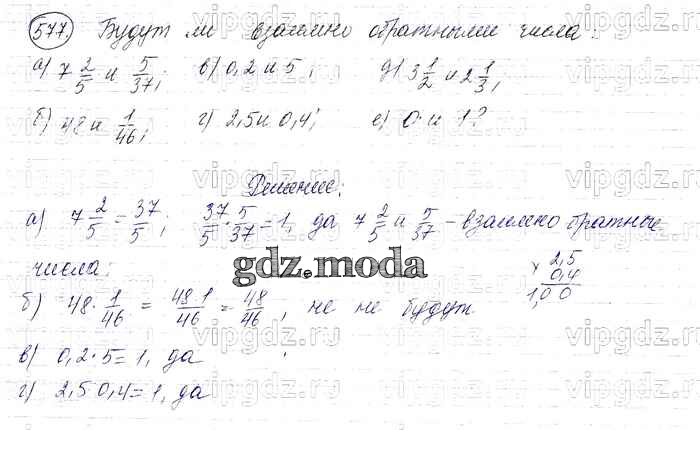 577. Будут ли взаимно обратными числа:
а) 7 2/5 и 5/37; в) 0,2 и 5; д) 3 1/2 и 2 1/3;
б) 48 и 1/46; г) 2,5 и 0,4; е) 0 и 1?
Решение:
а) 7 2/5 = 37/5; 37/5 · 5/37 = 1, да 7 2/5 и 5/37 – взаимно обратные
числа.
× 2,5
0,4
1,00
gdz.moda
б) 48 · 1/46 = 48·1/46 = 48/46, не не будут
в) 0,2 · 5 = 1, да
г) 2,5 0,4 = 1, да
vipgdz.ru